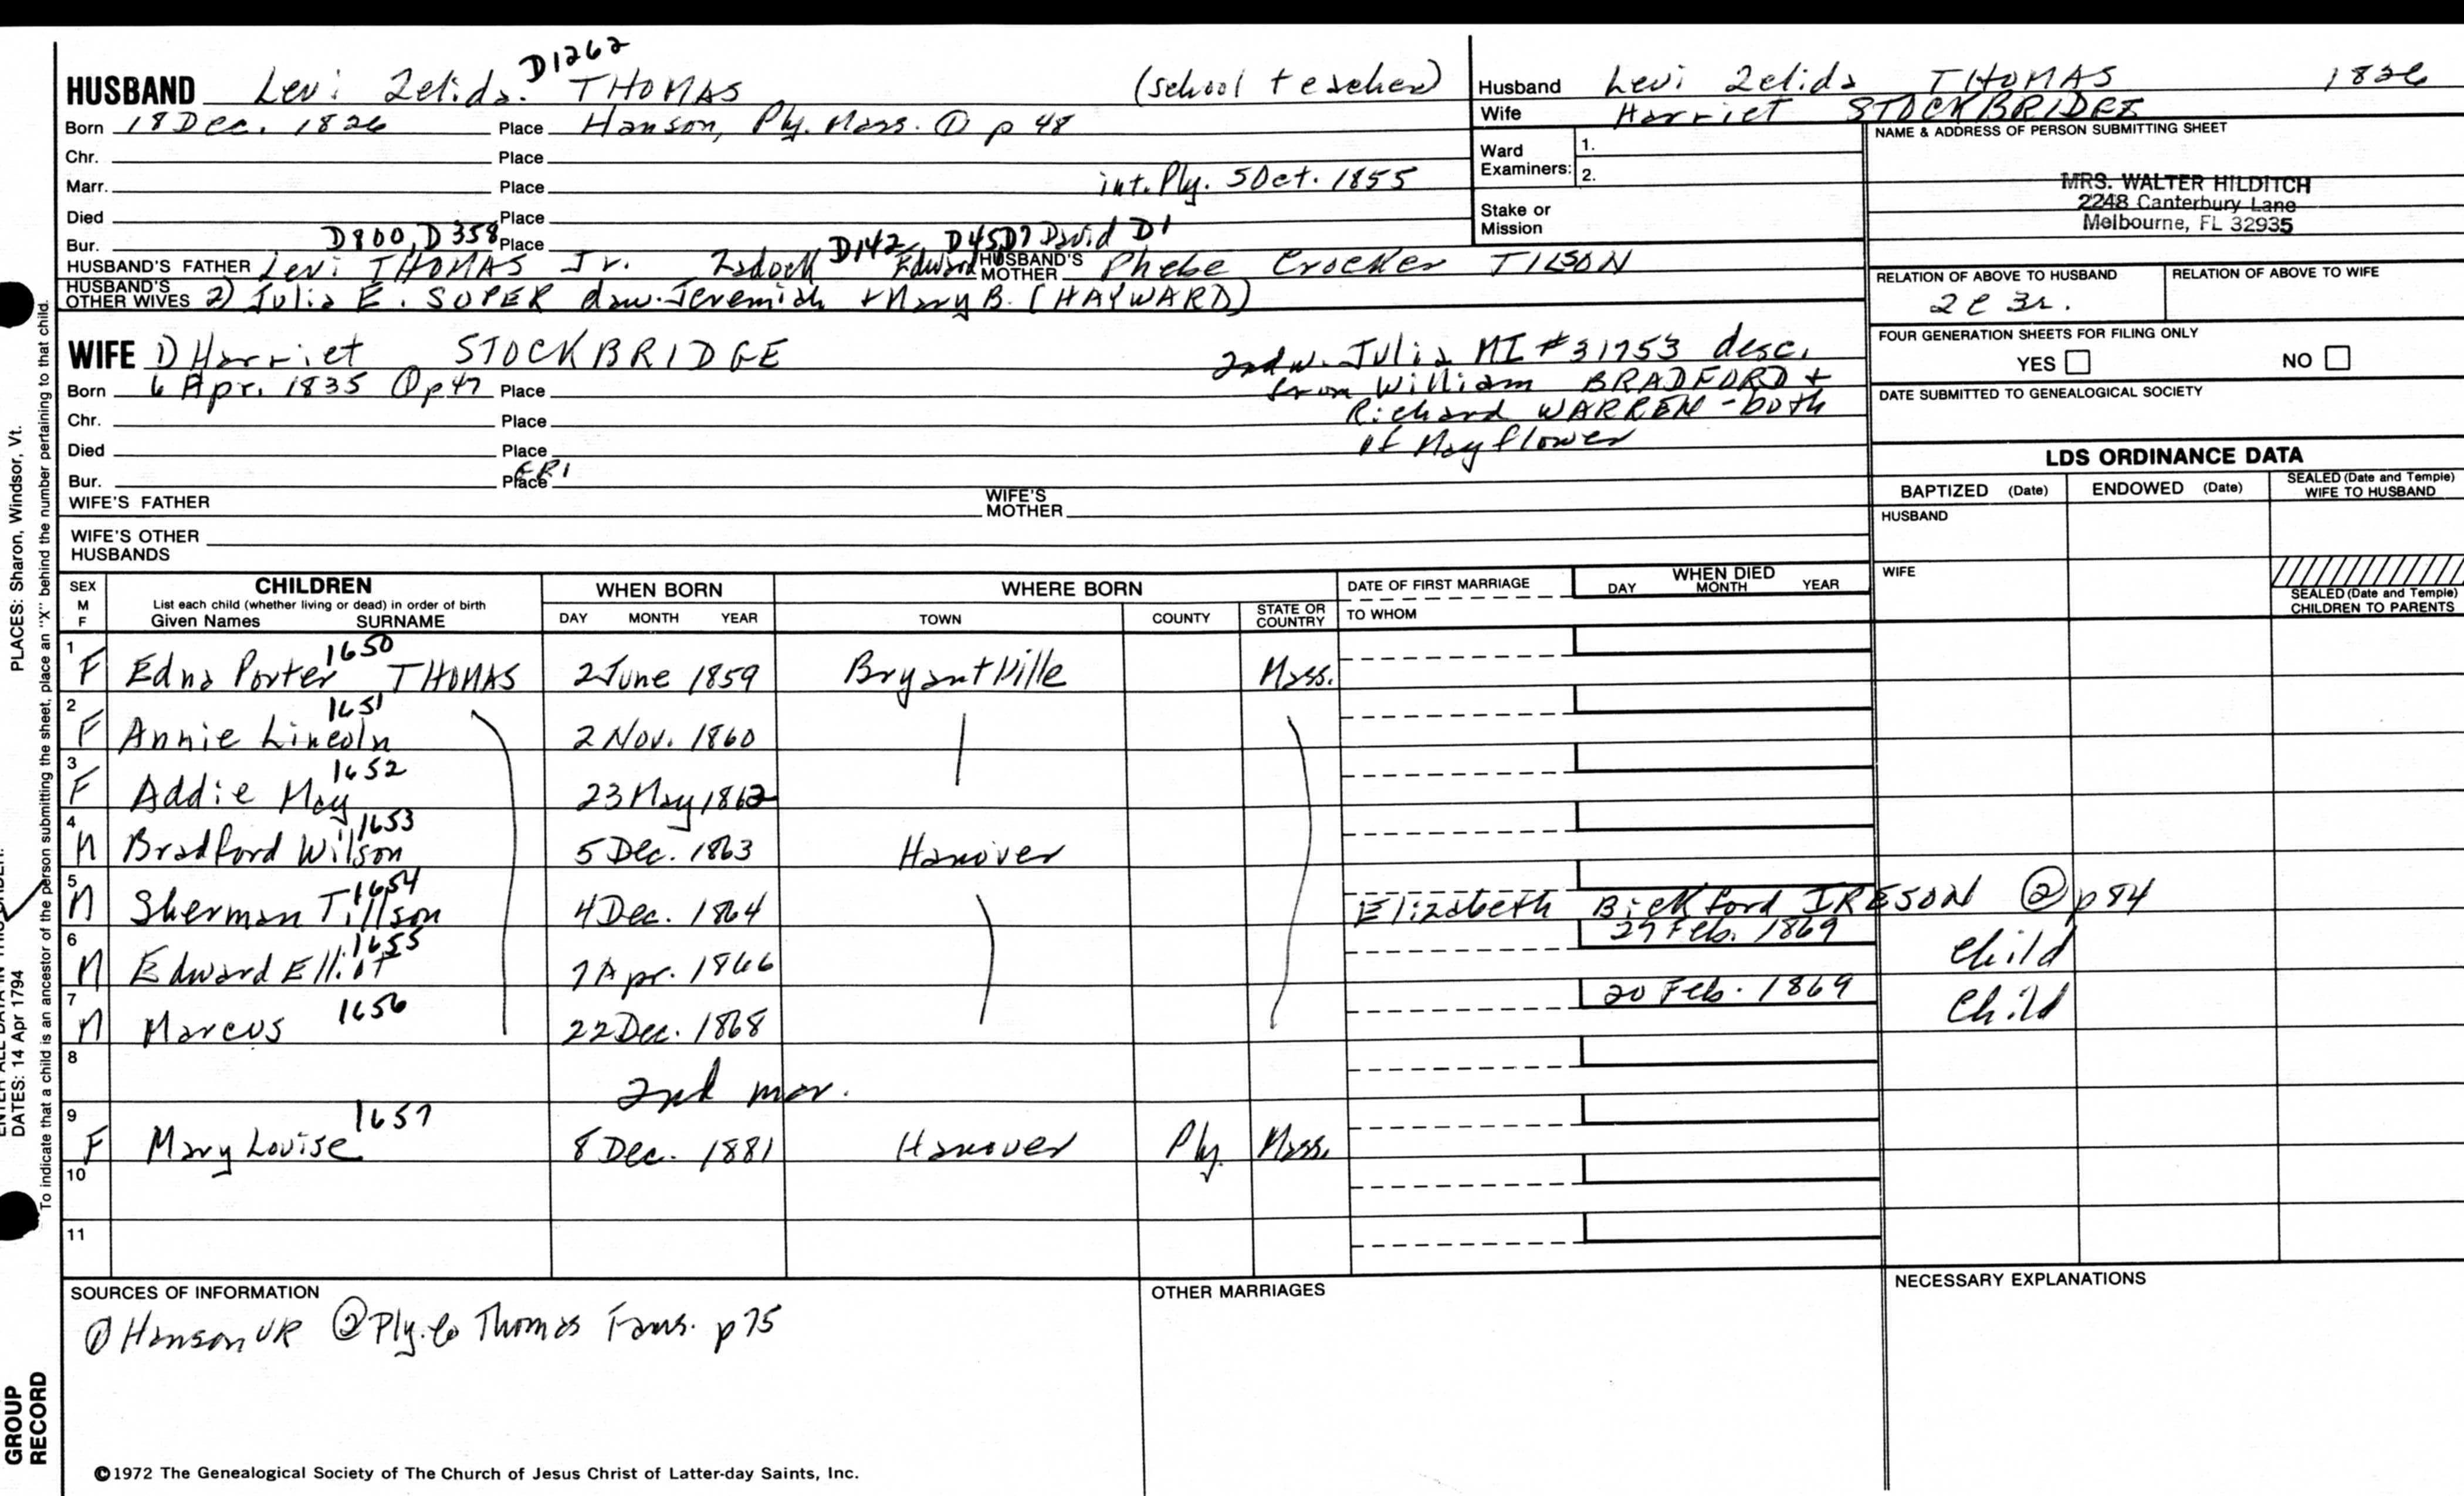 D1262
HUSBAND Levi Zelida THOMAS (school teacher)
Born 18 Dec. 1826 Place Hanson, Ply. Mass. ① p 48
Chr. Place
Marr. Place int. Ply. 5 Oct. 1855
Died Place
Bur. D800, D358 Place D142 D45 D7 David D1
HUSBAND'S FATHER Levi THOMAS Jr. Zadock Edward HUSBAND'S MOTHER Phebe Crocker TILSON
HUSBAND'S OTHER WIVES 2) Julia E. SOPER daw. Jeremiah + Mary B. (HAYWARD)
WIFE 1) Harriet STOCKBRIDGE
2nd w. Julia MI #31753 desc.
from William BRADFORD +
Richard WARREN - both
of Mayflower
Born 6 Apr. 1835 ① p 47 Place
Chr. Place
Died Place
Bur. Place
WIFE'S FATHER WIFE'S MOTHER
WIFE'S OTHER HUSBANDS
Husband Levi Zelida THOMAS 1826
Wife Harriet STOCKBRIDGE
Ward Examiners: 1.
2.
Stake or Mission
NAME & ADDRESS OF PERSON SUBMITTING SHEET
MRS. WALTER HILDITCH
2248 Canterbury Lane
Melbourne, FL 32935
RELATION OF ABOVE TO HUSBAND RELATION OF ABOVE TO WIFE
2c 3r.
FOUR GENERATION SHEETS FOR FILING ONLY
YES NO
DATE SUBMITTED TO GENEALOGICAL SOCIETY
LDS ORDINANCE DATA
BAPTIZED (Date) ENDOWED (Date) SEALED (Date and Temple) WIFE TO HUSBAND
HUSBAND
WIFE
SEALED (Date and Temple) CHILDREN TO PARENTS
SEX M F CHILDREN WHEN BORN WHERE BORN DATE OF FIRST MARRIAGE WHEN DIED
List each child (whether living or dead) in order of birth
Given Names SURNAME DAY MONTH YEAR TOWN COUNTY STATE OR COUNTRY TO WHOM DAY MONTH YEAR
1 F Edna Porter 1650 THOMAS 2 June 1859 Bryantville Mass.
2 F Annie Lincoln 1651 2 Nov. 1860
3 F Addie May 1652 23 May 1862
4 M Bradford Wilson 1653 5 Dec. 1863 Hanover
5 M Sherman Tillson 1654 4 Dec. 1864 Elizabeth Bickford IRESON ② p 84
6 M Edward Elliot 1655 7 Apr. 1866 27 Feb. 1869 Child
7 M Marcus 1656 22 Dec. 1868 20 Feb. 1869 Child
8 2nd mar.
9 F Mary Louise 1657 8 Dec. 1881 Hanover Ply. Mass.
10
11
SOURCES OF INFORMATION
① Hanson VR ② Ply. Co Thomas Fams. p 75
OTHER MARRIAGES
NECESSARY EXPLANATIONS
©1972 The Genealogical Society of The Church of Jesus Christ of Latter-day Saints, Inc.
PLACES: Sharon, Windsor, Vt.
To indicate that a child is an ancestor of the person submitting the sheet, place an "X" behind the number pertaining to that child.
DATES: 14 Apr 1794
GROUP RECORD